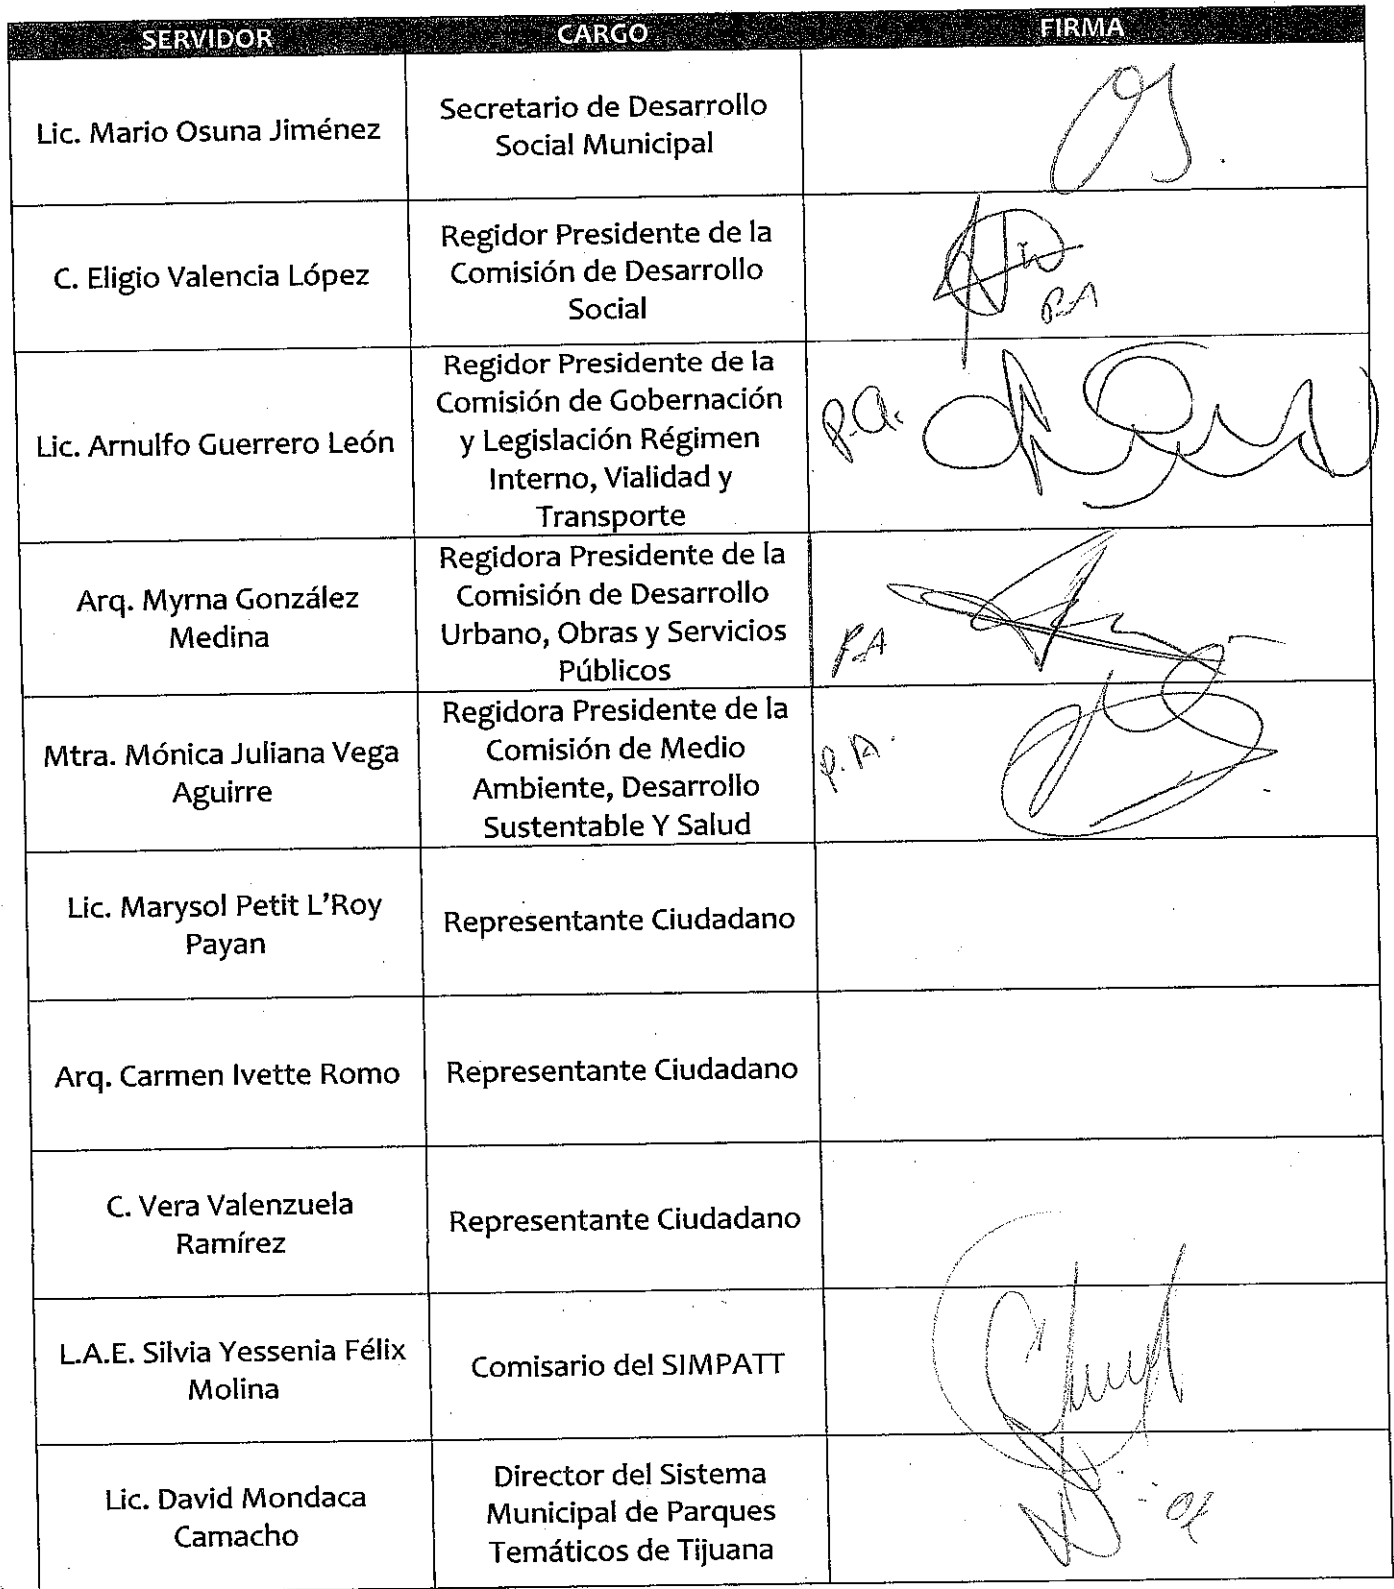 SERVIDOR CARGO FIRMA
Lic. Mario Osuna Jiménez
Secretario de Desarrollo
Social Municipal
C. Eligio Valencia López
Regidor Presidente de la
Comisión de Desarrollo
Social
P.A
Lic. Arnulfo Guerrero León
Regidor Presidente de la
Comisión de Gobernación
y Legislación Régimen
Interno, Vialidad y
Transporte
P.A.
Arq. Myrna González
Medina
Regidora Presidente de la
Comisión de Desarrollo
Urbano, Obras y Servicios
Públicos
P.A
Mtra. Mónica Juliana Vega
Aguirre
Regidora Presidente de la
Comisión de Medio
Ambiente, Desarrollo
Sustentable Y Salud
P.A.
Lic. Marysol Petit L'Roy
Payan
Representante Ciudadano
Arq. Carmen Ivette Romo
Representante Ciudadano
C. Vera Valenzuela
Ramírez
Representante Ciudadano
L.A.E. Silvia Yessenia Félix
Molina
Comisario del SIMPATT
Lic. David Mondaca
Camacho
Director del Sistema
Municipal de Parques
Temáticos de Tijuana